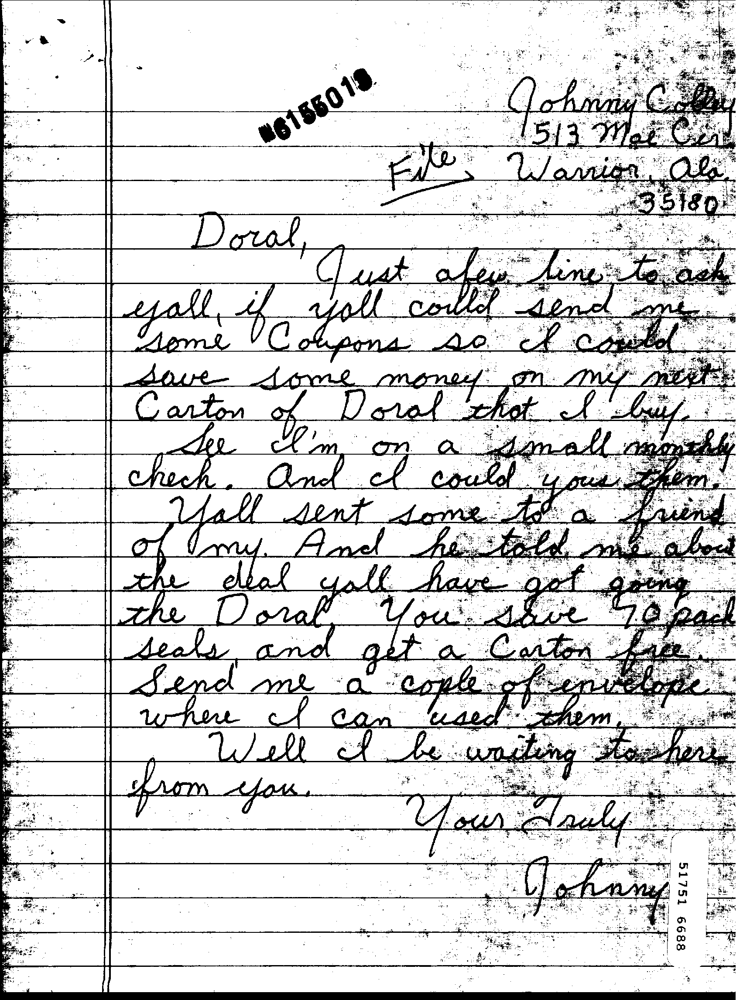 M6155019
Johnny Colley
513 Mae Cir
File Warrior, Ala.
35180
Doral,
Just afew line, to ask
yall, if yall could send me
some Coupons so I could
save some money on my next
Carton of Doral that I buy.
See I'm on a small monthly
check. And I could yous them.
Yall sent some to a friend
of my. And he told me about
the deal yall have got going
the Doral, You save 70 pack
seals, and get a Carton free.
Send me a cople of envelope
where I can used them.
Well I be waiting to here
from you.
Your Truly
Johnny
51751 6688